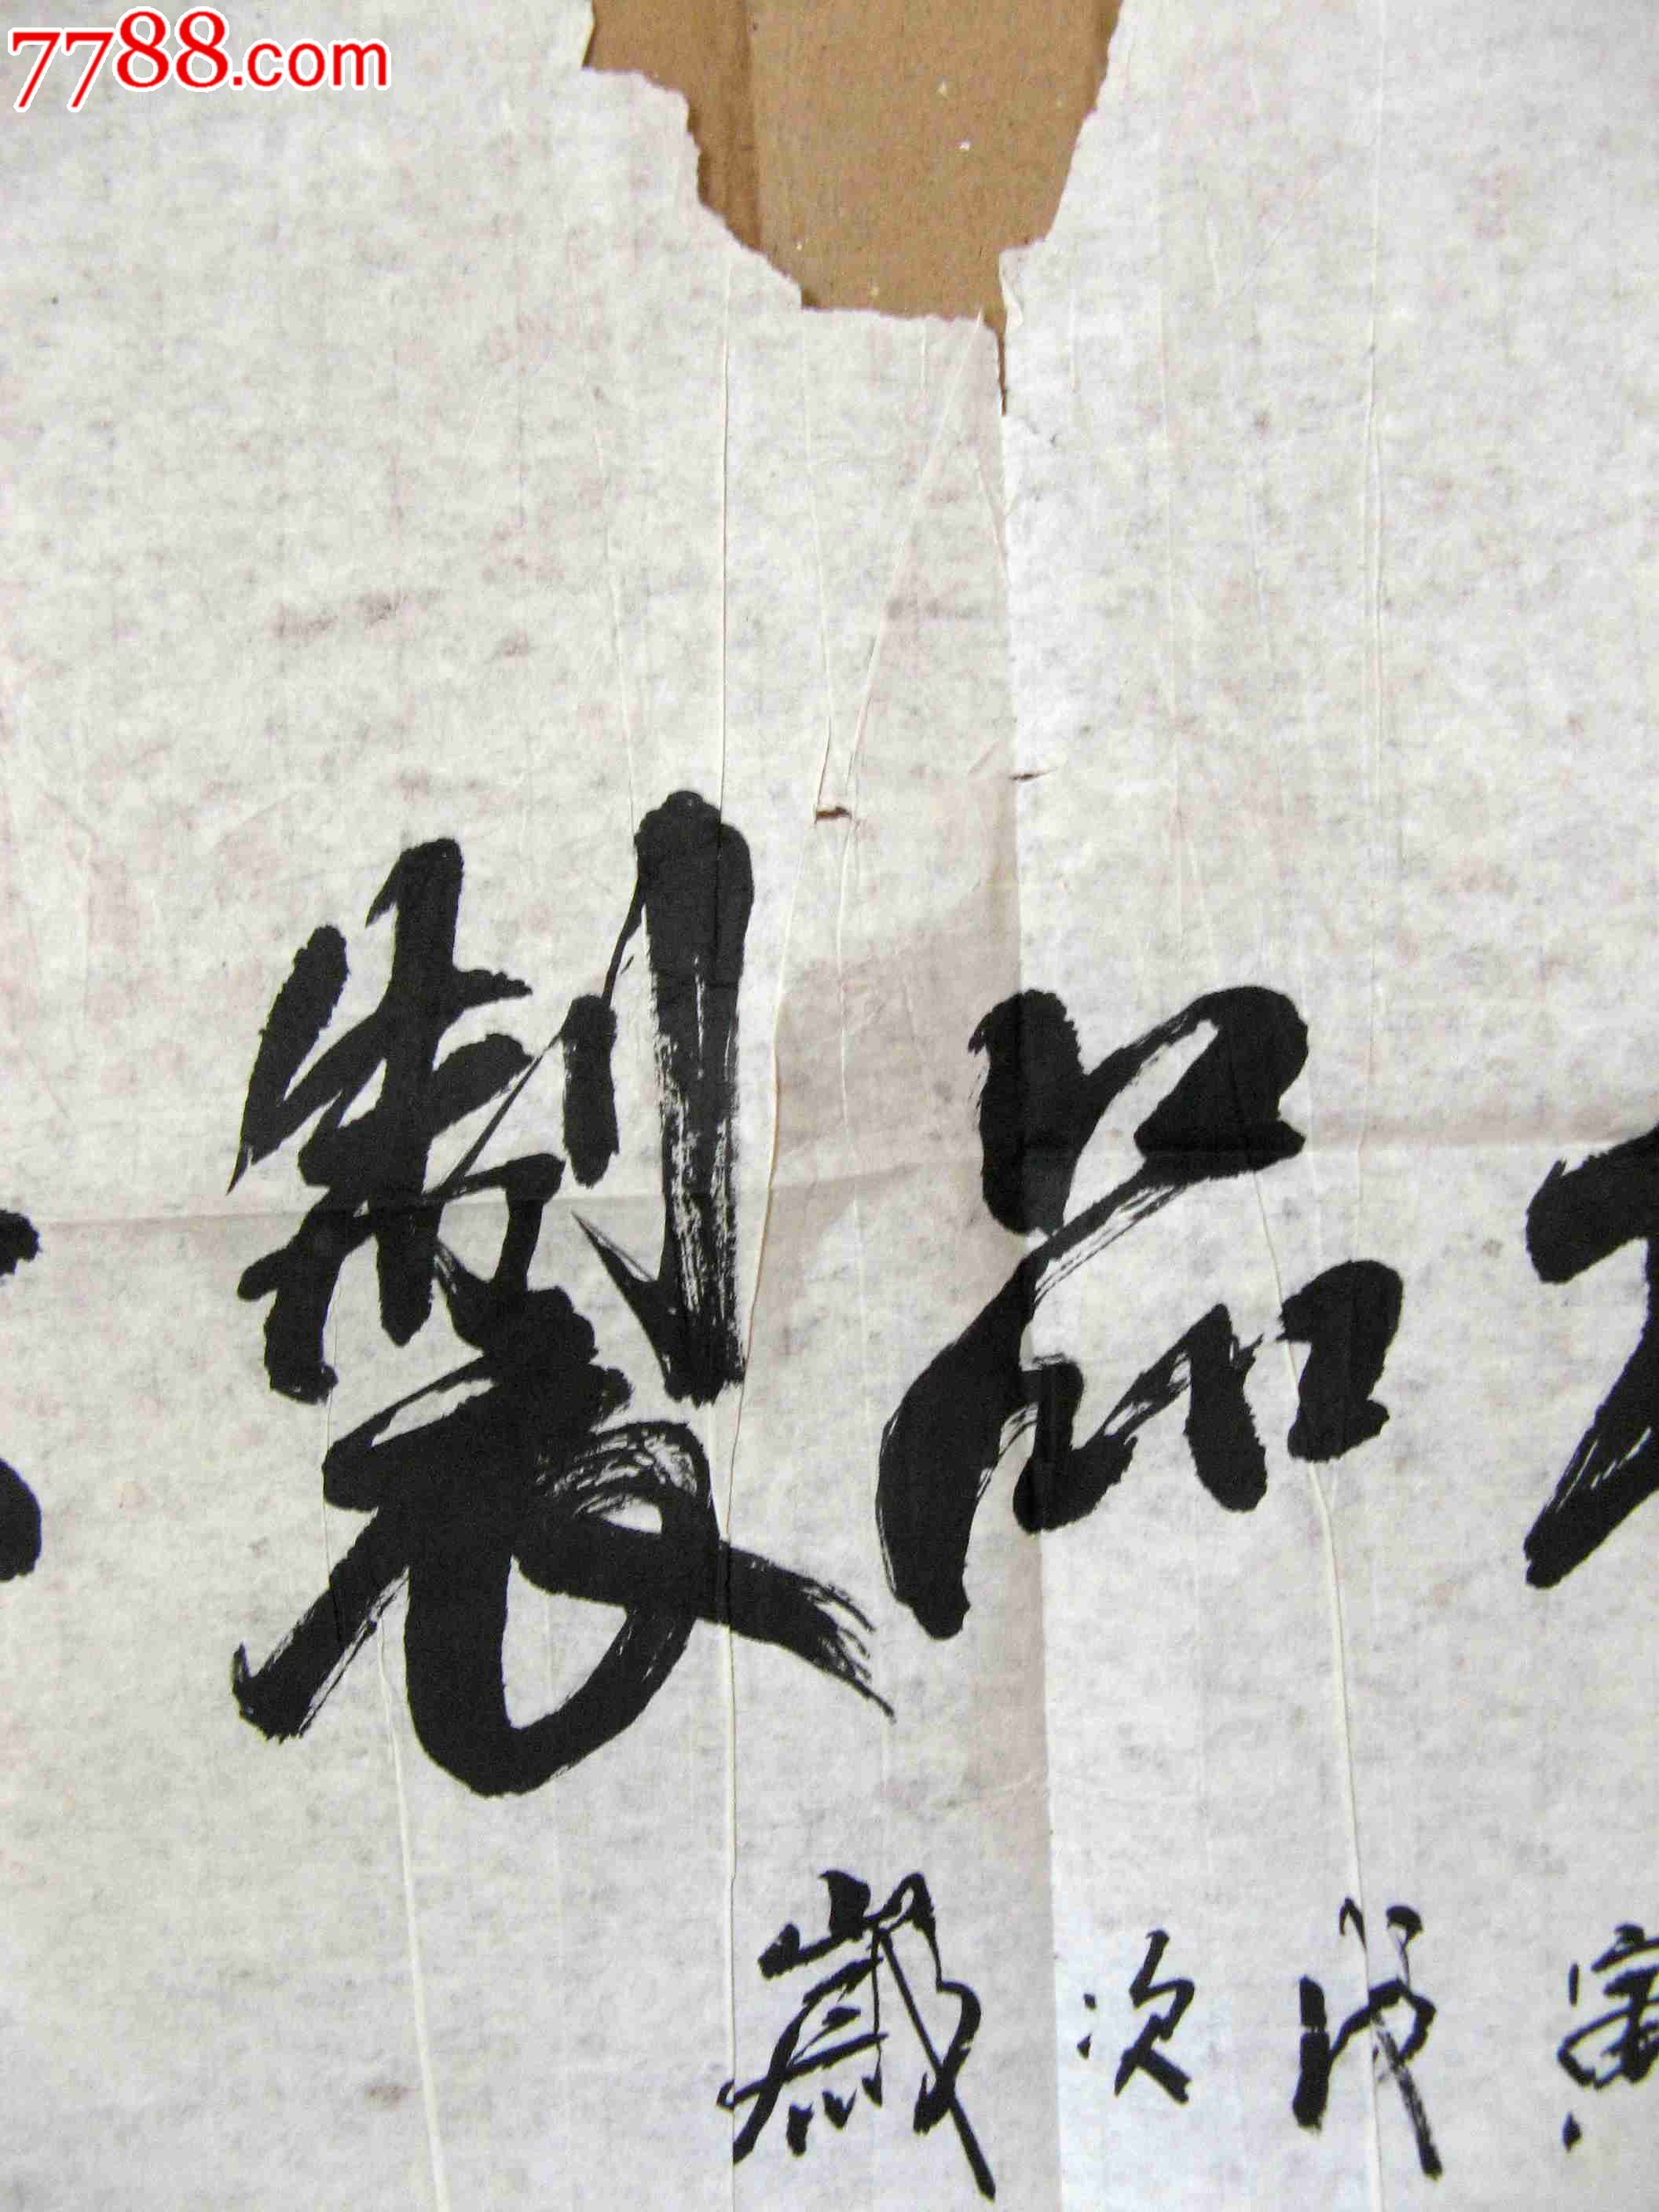 7788.com
製品
歲次戊寅